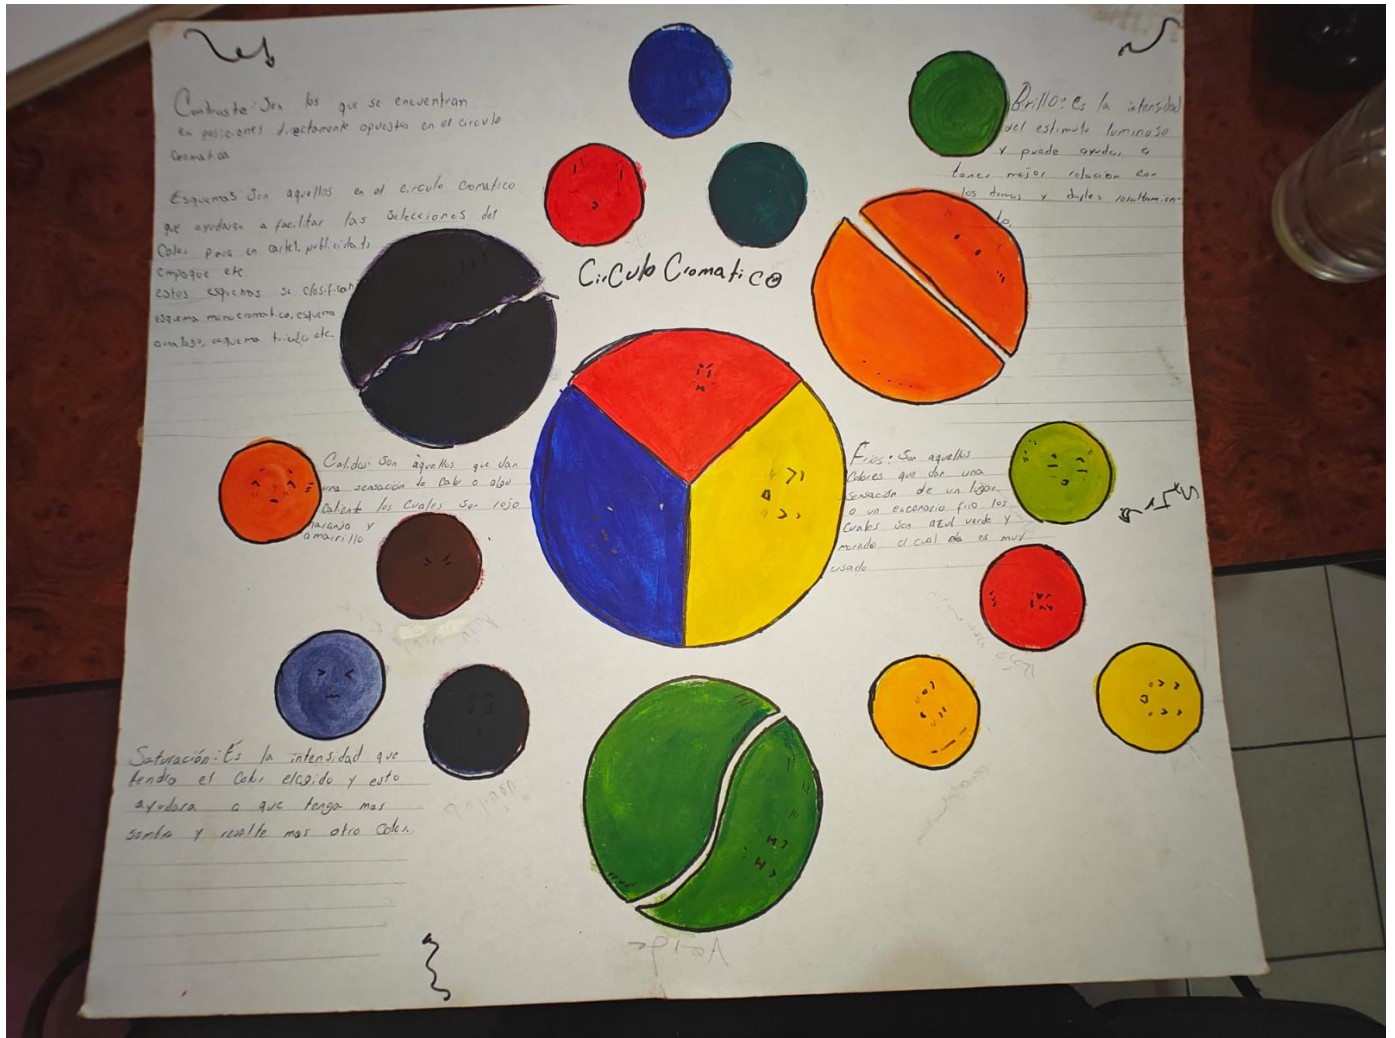 Contraste: Son los que se encuentran
en posiciones directamente opuestas en el circulo
cromatico
Esquemas: Son aquellos en el circulo cromatico
que ayudaran a facilitar las selecciones del
Color para un cartel, publicidad,
empaque etc.
estos esquemas se clasifican
esquema monocromatico, esquema
analogo, esquema triada, etc.
CirCulo Cromatico
Brillo: es la intensidad
del estimulo luminoso
y puede ayudar a
tener mejor relacion con
los demas y darles resaltamien-
to.
Calidos: Son aquellos que dan
una sensación de Calor o algo
Caliente los cuales son rojo
naranja y
amarillo
Frios: Son aquellos
Colores que dan una
sensación de un lugar
o un escenario frio los
Cuales son azul verde y
morado el cual no es muy
usado
Saturación: Es la intensidad que
tendra el Color elegido y esto
ayudara a que tenga mas
sombra y resalte mas otro Color.
Verde